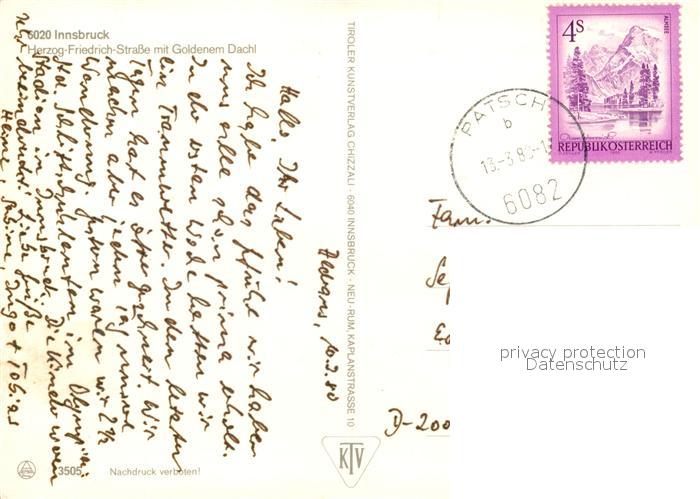 6020 Innsbruck
Herzog-Friedrich-Straße mit Goldenem Dachl
10.3.80
Hallo, Ihr Lieben!
Ich habe das Gefühl wir haben
uns alle schon prima erholt.
In der ersten Woche hatten wir
ein Traumwetter. In den letzten
Tagen hat es öfter geschneit. Wir
machen aber jeden Tag unsere
Wanderung. Gestern waren wir 2 ½
Std. im Olympia-
Stadion in Innsbruck. Die Kinder waren
sehr beeindruckt. Liebe Grüße
Heine, Sabine, Ingo + Tobias
3505
Nachdruck verboten!
TIROLER KUNSTVERLAG CHIZZALI · 6040 INNSBRUCK - NEU-RUM, KAPLANSTRASSE 10
KTV
PATSCH
b
13.-3.80-1
6082
4S
ALMSEE
REPUBLIK ÖSTERREICH
Fam.
D-200
privacy protection
Datenschutz